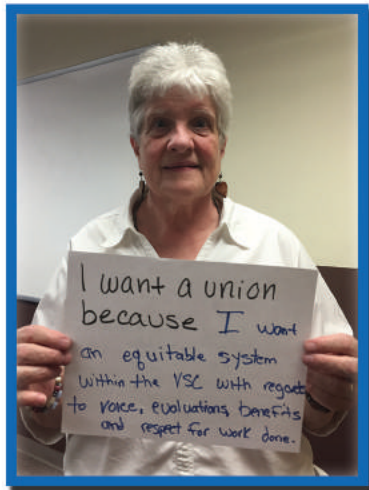 I want a union
because I want
an equitable system
within the VSC with regards
to voice, evaluations, benefits
and respect for work done.